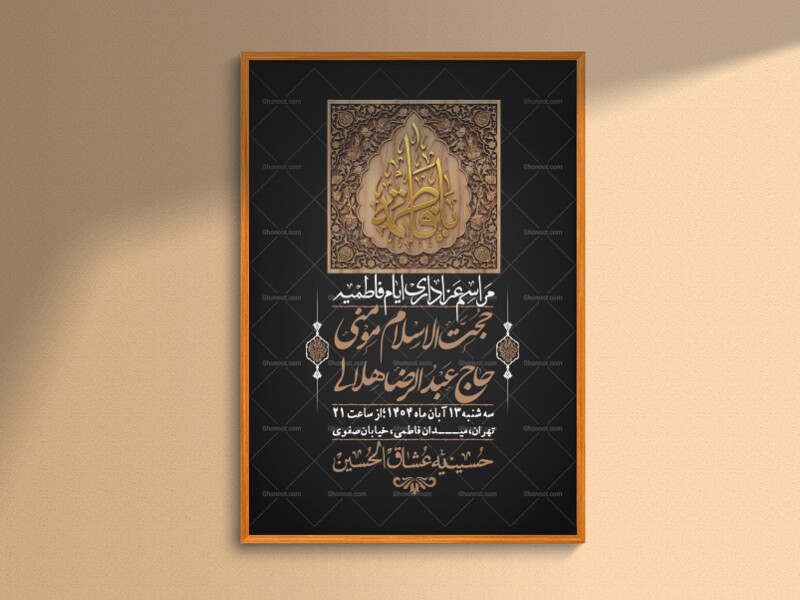 یا فاطمة
مراسم عزاداری ایام فاطمیه
حجت الاسلام مومنی
حاج عبدالرضا هلالی
سه شنبه ۱۳ آبان ماه ۱۴۰۴؛از ساعت ۲۱
تهران، میـــدان فاطمی، خیابان صفوی
حسینیه عشاق الحسین
Ghonoot.com